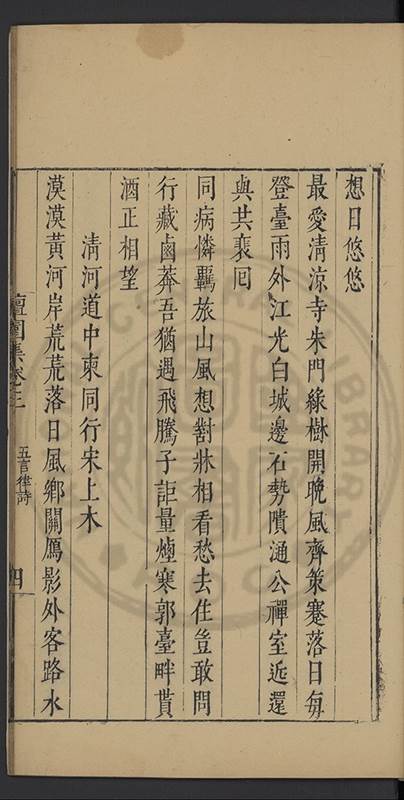 想日悠悠
最愛淸涼寺朱門緑樹開晚風齊策蹇落日每
登臺雨外江光白城邊石勢隤通公禪室近還
與共裵回
同病憐羈旅山風想對牀相看愁去住豈敢問
行藏鹵莽吾猶遇飛騰子詎量煙寒郭臺畔貰
酒正相望
淸河道中柬同行宋上木
漠漠黃河岸荒荒落日風鄉關鴈影外客路水
檀園集卷三
五言律詩
四